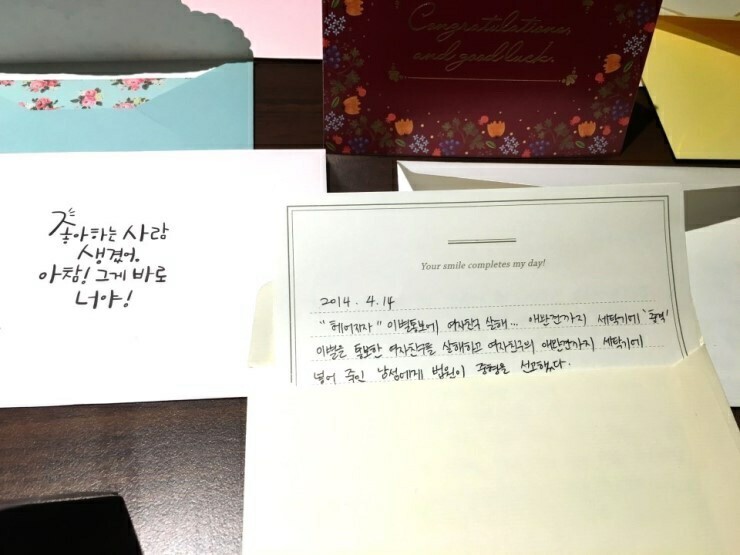 Congratulations,
and good luck.
좋아하는 사람
생겼어.
아참! 그게 바로
너야!
Your smile completes my day!
2014. 4. 14
"헤어지자" 이별통보에 여자친구 살해... 애완견까지 세탁기에 '충격'
이별을 통보한 여자친구를 살해하고 여자친구의 애완견까지 세탁기에
넣어 죽인 남성에게 법원이 중형을 선고했다.